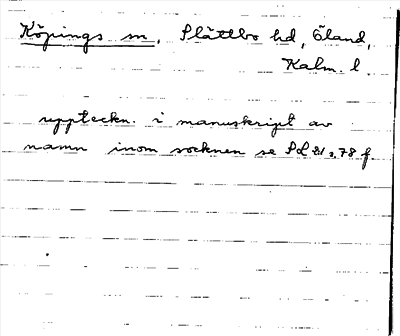 Köpings sn, Slättbo hd, Öland,
Kalm. l.
uppteckn. i manuskript av
namn inom socknen se s. 78 f.